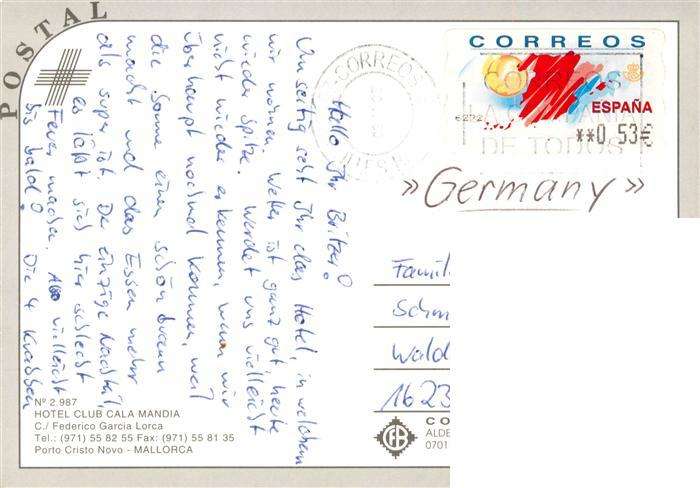 POSTAL
CORREOS
ESPAÑA
**0,53€
CORREOS
DE TODOS
»Germany»
Hallo Ihr Britzer!
Umseitig seht Ihr das Hotel, in welchem
wir wohnen. Wetter ist ganz gut, heute
wieder Spitze. Werdet uns vielleicht
nicht wieder erkennen, wenn wir
überhaupt nochmal kommen, weil
die Sonne einen schön braun
macht und das Essen mehr
als super ist. Der einzige Nachteil,
es läßt sich hier schlecht
Feuer machen. Also vielleicht
bis bald! Die 4 Krassen
Famil
Schm
Wald
1623
Nº 2.987
HOTEL CLUB CALA MANDIA
C./ Federico Garcia Lorca
Tel.: (971) 55 82 55 Fax: (971) 55 81 35
Porto Cristo Novo - MALLORCA
CO
ALDE
0701